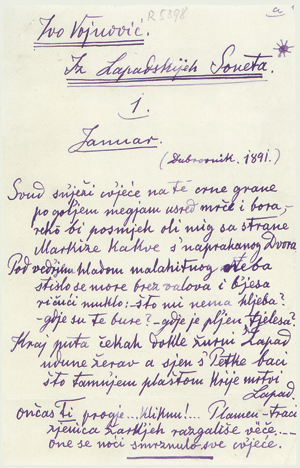 R 5398
a
Ivo Vojnović.
Iz Lapadskijeh Soneta.
1.
Januar.
(Dubrovnik. 1891.)
Svud snježi cvjeće na te crne grane
po goljem megjam usred mrče i bora,
rekô bi posmjeh oli mig sa strane
Markize kakve s' naprahanog Dvora
Pod vedrijem hladom malahitnog Neba
stislo se more brez valova i bijesa
ričući muklo: što mi nema hljeba?
- gdje su te bure? - gdje je pljen tjelesa?
Kraj puta čekah dokle žurni Zapad
undune žerav a sjen s' Petke baci
što tamnijem plaštom krije mrtvi
Lapad.
ončas Ti progje... Kliknu!... Plamen-traci
zjenica žarkijeh razgališe veče,...
one se noći smrznulo sve cvjeće.